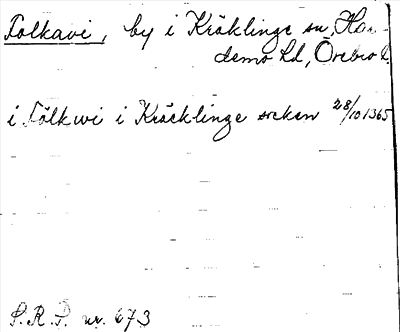 Folkavi, by i Kräklinge sn, Har-
demo hd, Örebro l.
i Fólkwi i Kräcklinge socken 28/10 1365
S.R.P. nr. 673